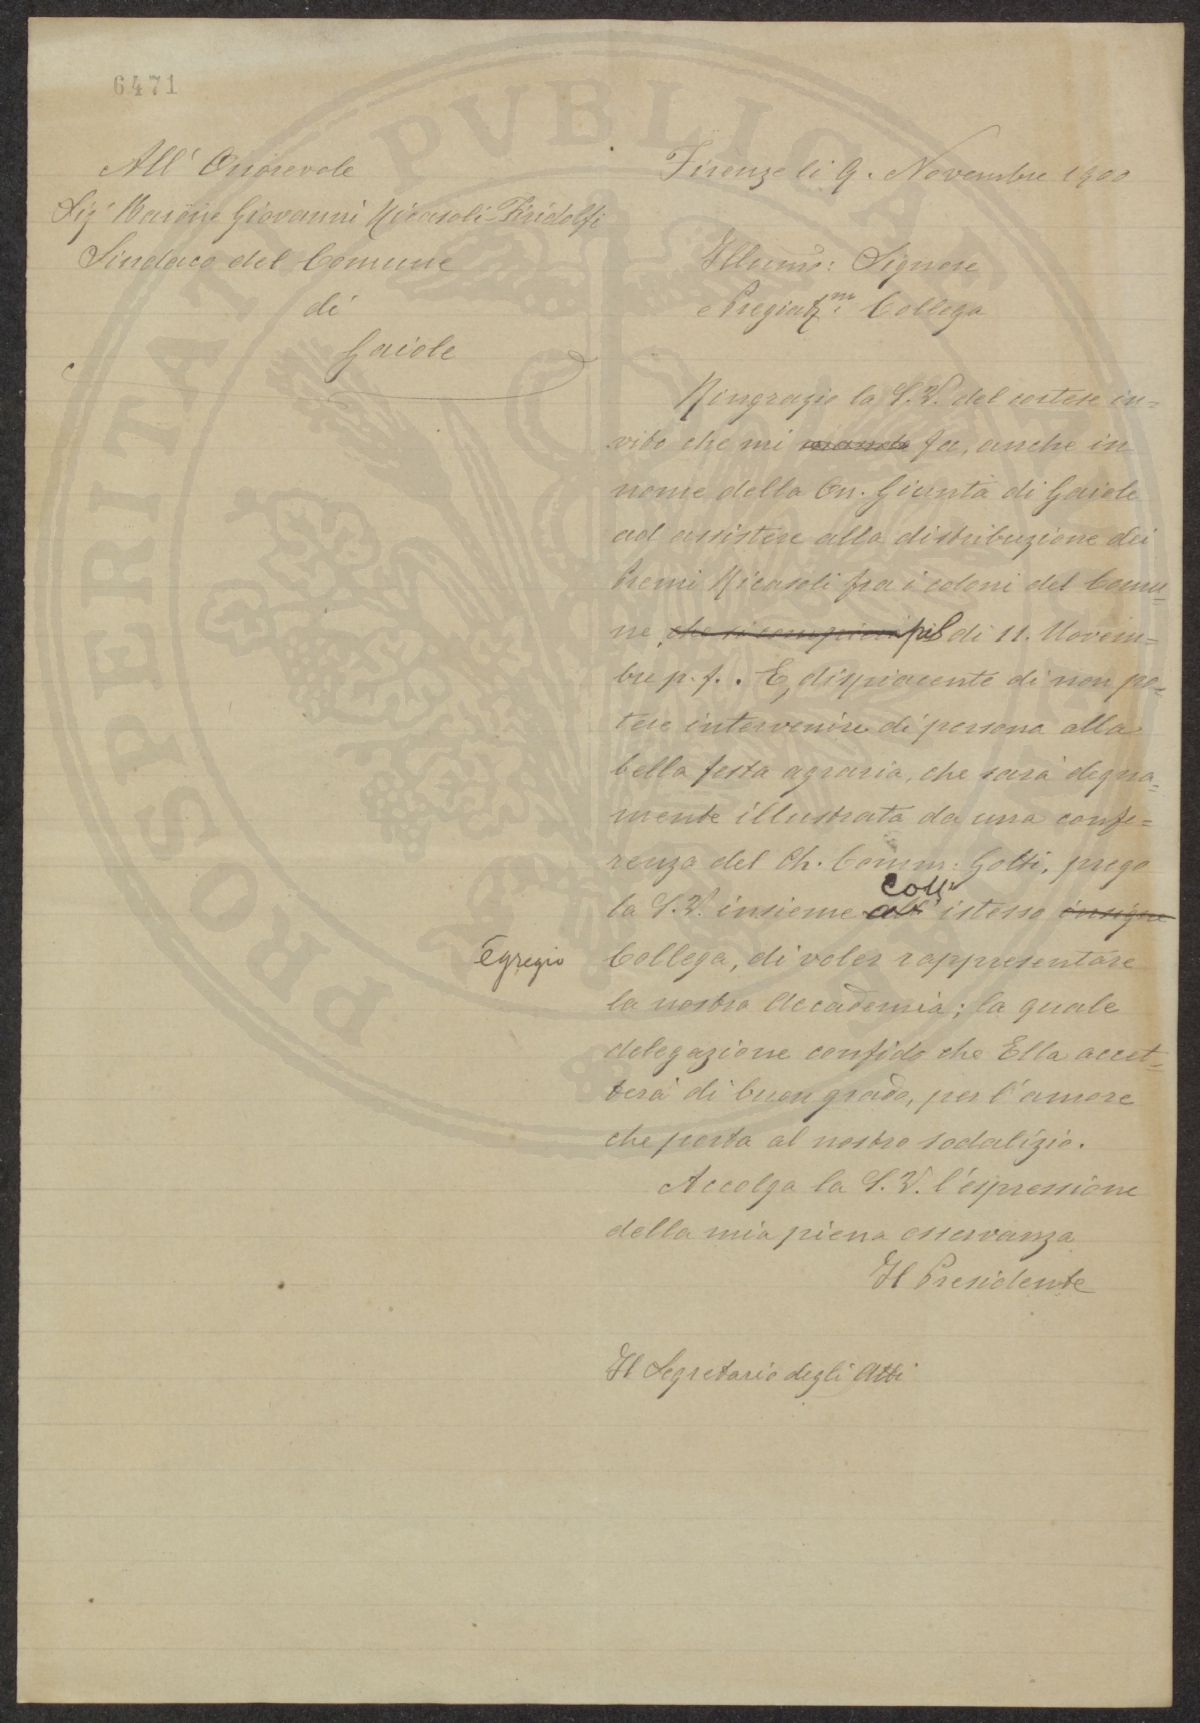 6471
All' Onorevole
Sigr Barone Giovanni Ricasoli-Firidolfi
Sindaco del Comune
di
Gaiole
Firenze li 9. Novembre 1900
Illumo: Signore
e Pregiatmo Collega
Ringrazio la S.V. del cortese in=
vito che mi manda fa, anche in
nome della On. Giunta di Gaiole
ad assistere alla distribuzione dei
Premi Ricasoli fra i coloni del Comu=
ne, che si pel di 11. Novem=
bre p.f.. E, dispiacente di non po=
tere intervenire di persona alla
bella festa agraria, che sarà degna=
mente illustrata da una confe=
renza del Ch. Comm: Gotti, prego
la S.V. insieme all' coll' istesso insigne
Egregio Collega, di voler rappresentare
la nostra Accademia; la quale
delegazione confido che Ella accet=
terà di buon grado, per l'amore
che porta al nostro sodalizio.
Accolga la S.V. l'espressione
della mia piena osservanza
Il Presidente
Il Segretario degli Atti
PROSPERITATI PVBLICAE